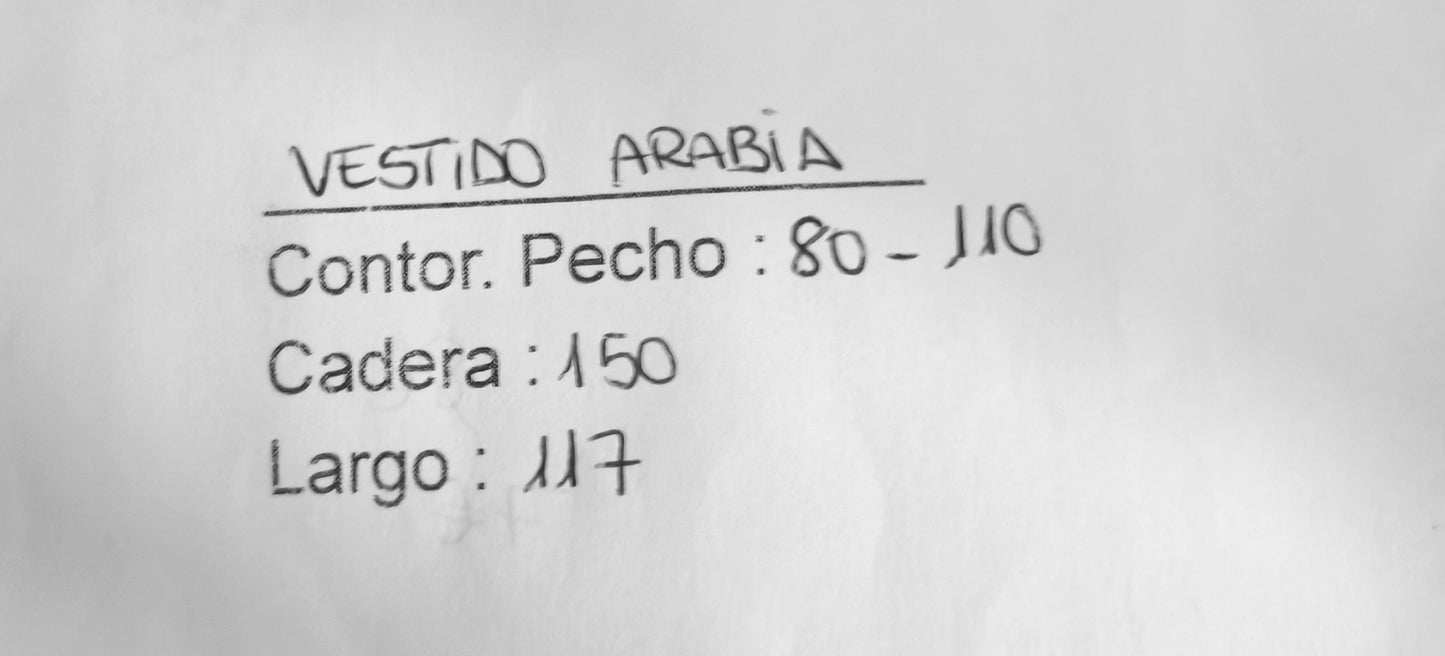 VESTIDO ARABIA
Contor. Pecho : 80 - 110
Cadera : 150
Largo : 117